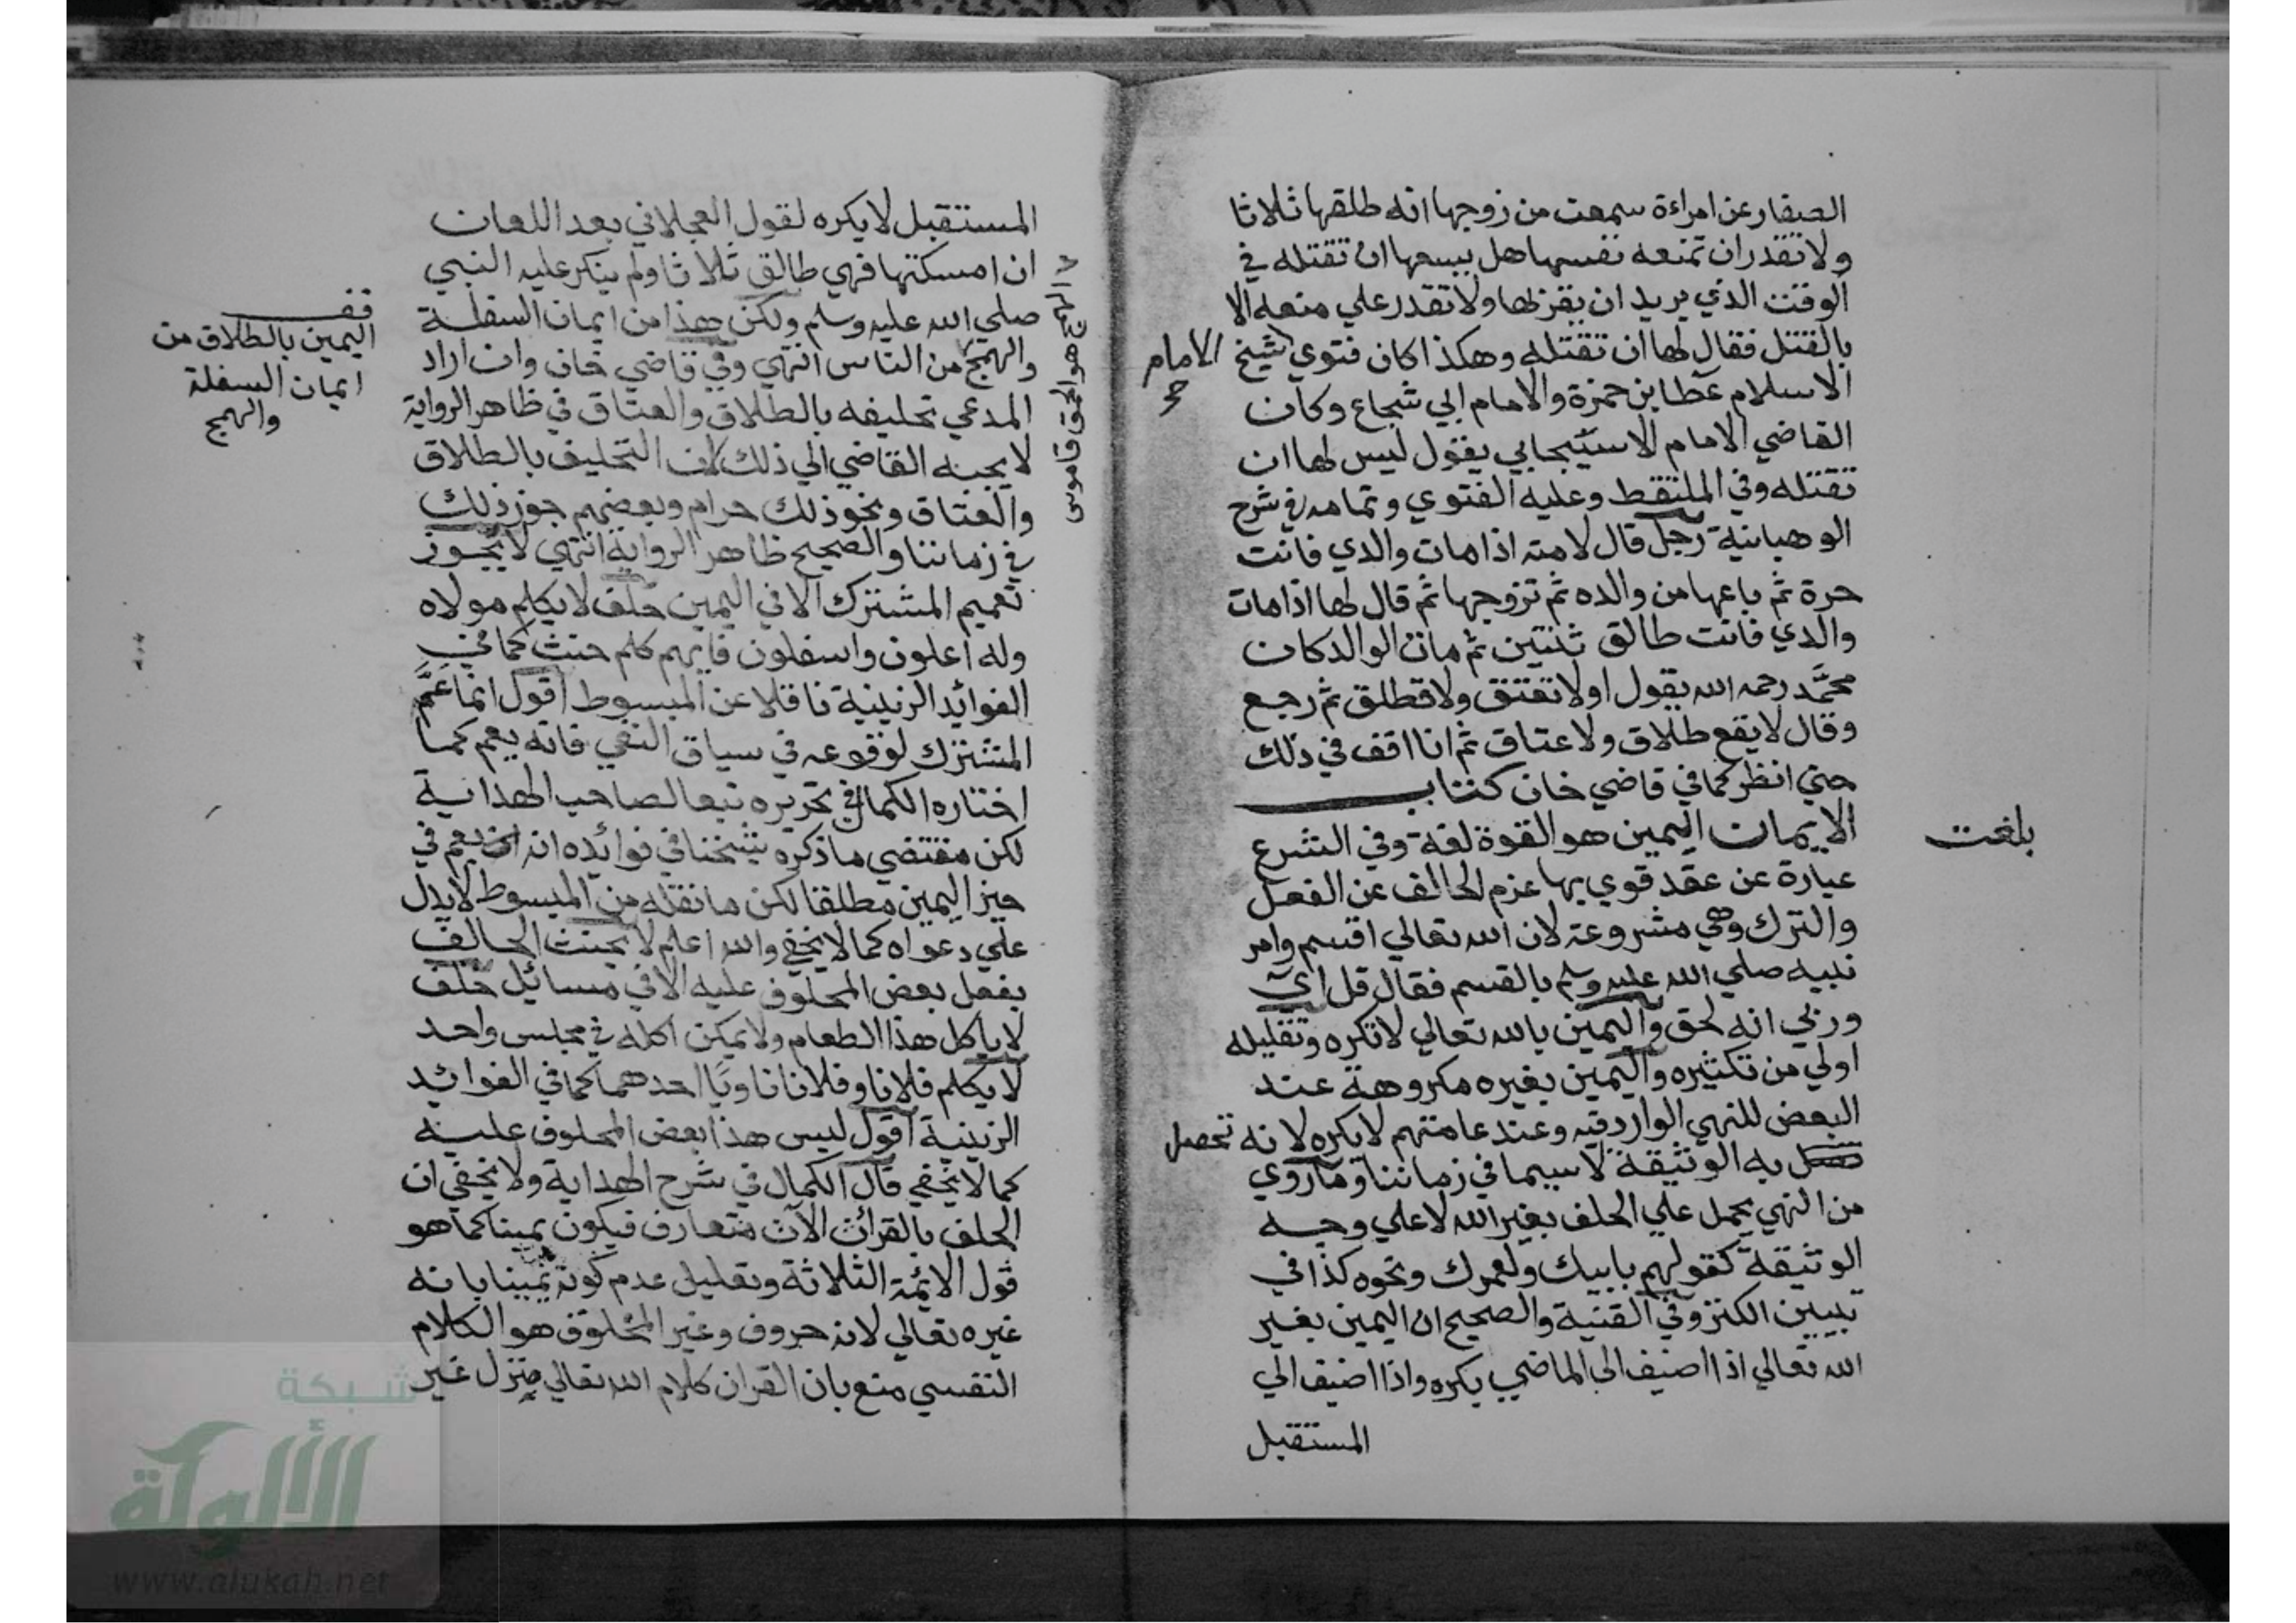 الصفار عن امراءة سمعت من زوجها انه طلقها ثلاثا
ولا تقدران تمنعه نفسها هل يسعها ان تقتله في
الوقت الذي يريد ان يقربها ولا تقدر علي منعه الا
بالقتل فقال لها ان تقتله وهكذا كان فتوي شيخ الامام
الاسلام عطا بن حمزة والامام ابي شجاع وكان
القاضي الامام الاسبيجابي يقول ليس لها ان
تقتله وفي الملتقط وعليه الفتوي وتمامه في شرح
الوهبانية رجل قال لامته اذا مات والدي فانت
حرة ثم باعها من والده ثم تزوجها ثم قال لها اذا مات
والدي فانت طالق ثنتين ثم مات الوالد كان
محمد رحمه الله يقول اولا تعتق ولا تطلق ثم رجع
وقال لا يقع طلاق ولا عتاق ثم انا اقف في ذلك
حتي انظر كما في قاضي خان كتاب
الايمان اليمين هو القوة لغة وفي الشرع
عبارة عن عقد قوي بها عزم الحالف عن الفعل
والترك وهي مشروعة لان الله تعالي اقسم وامر
نبيه صلي الله عليه وسلم بالقسم فقال قل اي
وربي انه لحق واليمين بالله تعالي لا تكره وتقليله
اولي من تكثيره واليمين بغيره مكروهة عند
البعض للنهي الوارد فيه وعند عامتهم لا يكره لانه تحصل
به الوثيقة لا سيما في زماننا وما روي
من النهي يحمل علي الحلف بغير الله لا علي وجه
الوثيقة كقولهم بابيك ولعمرك ونحوه كذا في
تبيين الكنز وفي القنية والصحيح ان اليمين بغير
الله تعالي اذا اضيف الي الماضي يكره واذا اضيف الي
المستقبل
بلغت
المستقبل لا يكره لقول العجلاني بعد اللعان
ان امسكتها فهي طالق ثلاثا ولم ينكر عليه النبي
صلي الله عليه وسلم ولكن هذا من ايمان السفلة
والهمج من الناس انتهي وفي قاضي خان وان اراد
المدعي تحليفه بالطلاق والعتاق في ظاهر الرواية
لا يجبه القاضي الي ذلك لان التحليف بالطلاق
والعتاق ونحو ذلك حرام وبعضهم جوز ذلك
في زماننا والصحيح ظاهر الرواية انتهي لا يجوز
تعميم المشترك الا في اليمين حلف لا يكلم مولاه
وله اعلون واسفلون فايهم كلم حنث كما في
الفوائد الزينية ناقلا عن المبسوط اقول انما عم
المشترك لوقوعه في سياق النفي فانه يعم كما
اختاره الكمال في تحريره تبعا لصاحب الهداية
لكن مقتضي ما ذكره شيخنا في فوائده انه يعم في
حيز اليمين مطلقا لكن ما نقله من المبسوط لا يدل
علي دعواه كما لا يخفي والله اعلم لا يحنث الحالف
بفعل بعض المحلوف عليه الا في مسائل حلف
لا ياكل هذا الطعام ولا يمكن اكله في مجلس واحد
لا يكلم فلانا وفلانا ناويا احدهما كما في الفوائد
الزينية اقول ليس هذا بعض المحلوف عليه
كما لا يخفي قال الكمال في شرح الهداية ولا يخفي ان
الحلف بالقران الآن متعارف فيكون يمينا كما هو
قول الائمة الثلاثة وتعليل عدم كونه يمينا بانه
غيره تعالي لانه حروف وغير المخلوق هو الكلام
النفسي منع بان القران كلام الله تعالي منزل غير
قف
اليمين بالطلاق من
ايمان السفلة
والهمج
الهمج هو الحمق قاموس
شبكة
الألوكة
www.alukah.net